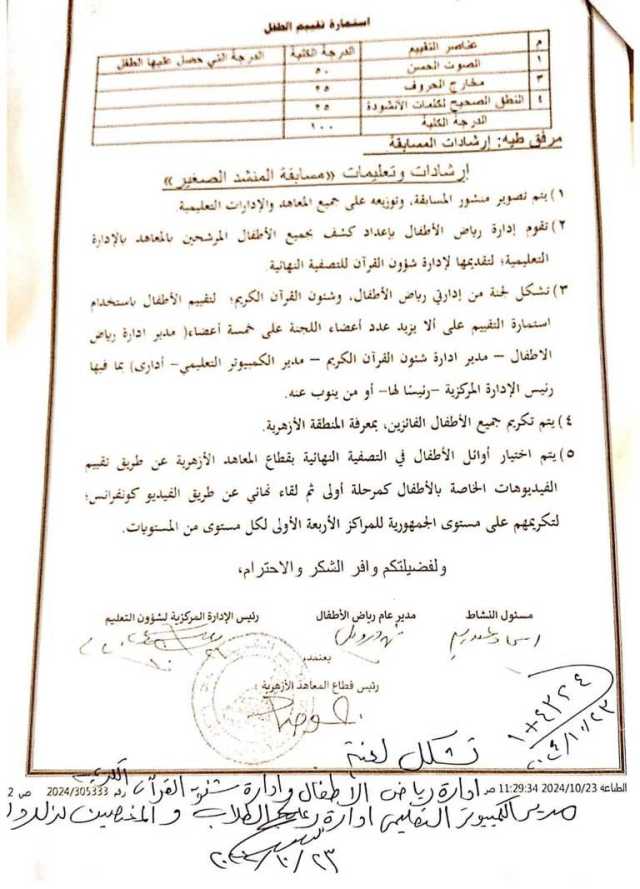 استمارة تقييم الطفل
م عناصر التقييم الدرجة الكلية الدرجة التي حصل عليها الطفل
١ الصوت الحسن ٥٠
٣ مخارج الحروف ٢٥
٤ النطق الصحيح لكلمات الأنشودة ٢٥
الدرجة الكلية ١٠٠
مرفق طيه: إرشادات المسابقة
إرشادات وتعليمات «مسابقة المنشد الصغير»
١) يتم تصوير منشور المسابقة، وتوزيعه على جميع المعاهد والإدارات التعليمية.
٢) تقوم إدارة رياض الأطفال بإعداد كشف بجميع الأطفال المرشحين بالمعاهد بالإدارة
التعليمية؛ لتقديمها لإدارة شؤون القرآن للتصفية النهائية.
٣) تشكل لجنة من إدارتي رياض الأطفال، وشئون القرآن الكريم؛ لتقييم الأطفال باستخدام
استمارة التقييم على ألا يزيد عدد أعضاء اللجنة على خمسة أعضاء( مدير ادارة رياض
الاطفال – مدير ادارة شئون القرآن الكريم – مدير الكمبيوتر التعليمي – أدارى) بما فيها
رئيس الإدارة المركزية –رئيسًا لها– أو من ينوب عنه.
٤) يتم تكريم جميع الأطفال الفائزين، بمعرفة المنطقة الأزهرية.
٥) يتم اختيار أوائل الأطفال في التصفية النهائية بقطاع المعاهد الأزهرية عن طريق تقييم
الفيديوهات الخاصة بالأطفال كمرحلة أولى ثم لقاء نهائي عن طريق الفيديو كونفرانس؛
لتكريمهم على مستوى الجمهورية للمراكز الأربعة الأولى لكل مستوى من المستويات.
ولفضيلتكم وافر الشكر والاحترام،
مسئول النشاط مدير عام رياض الأطفال رئيس الإدارة المركزية لشؤون التعليم
يعتمد،
رئيس قطاع المعاهد الأزهرية
١+٤٣٢٤
٢٠٢٤/١٠/٢٣
تشكل لجنة
ادارة رياض الأطفال وادارة شئون القرآن الكريم
الطباعة 2024/10/23 11:29:34 ص رقم 2024/305333 ص 2
مدير الكمبيوتر التعليمي ادارة رعاية الطلاب و المختصين
٢٠٢٤/١٠/٢٣